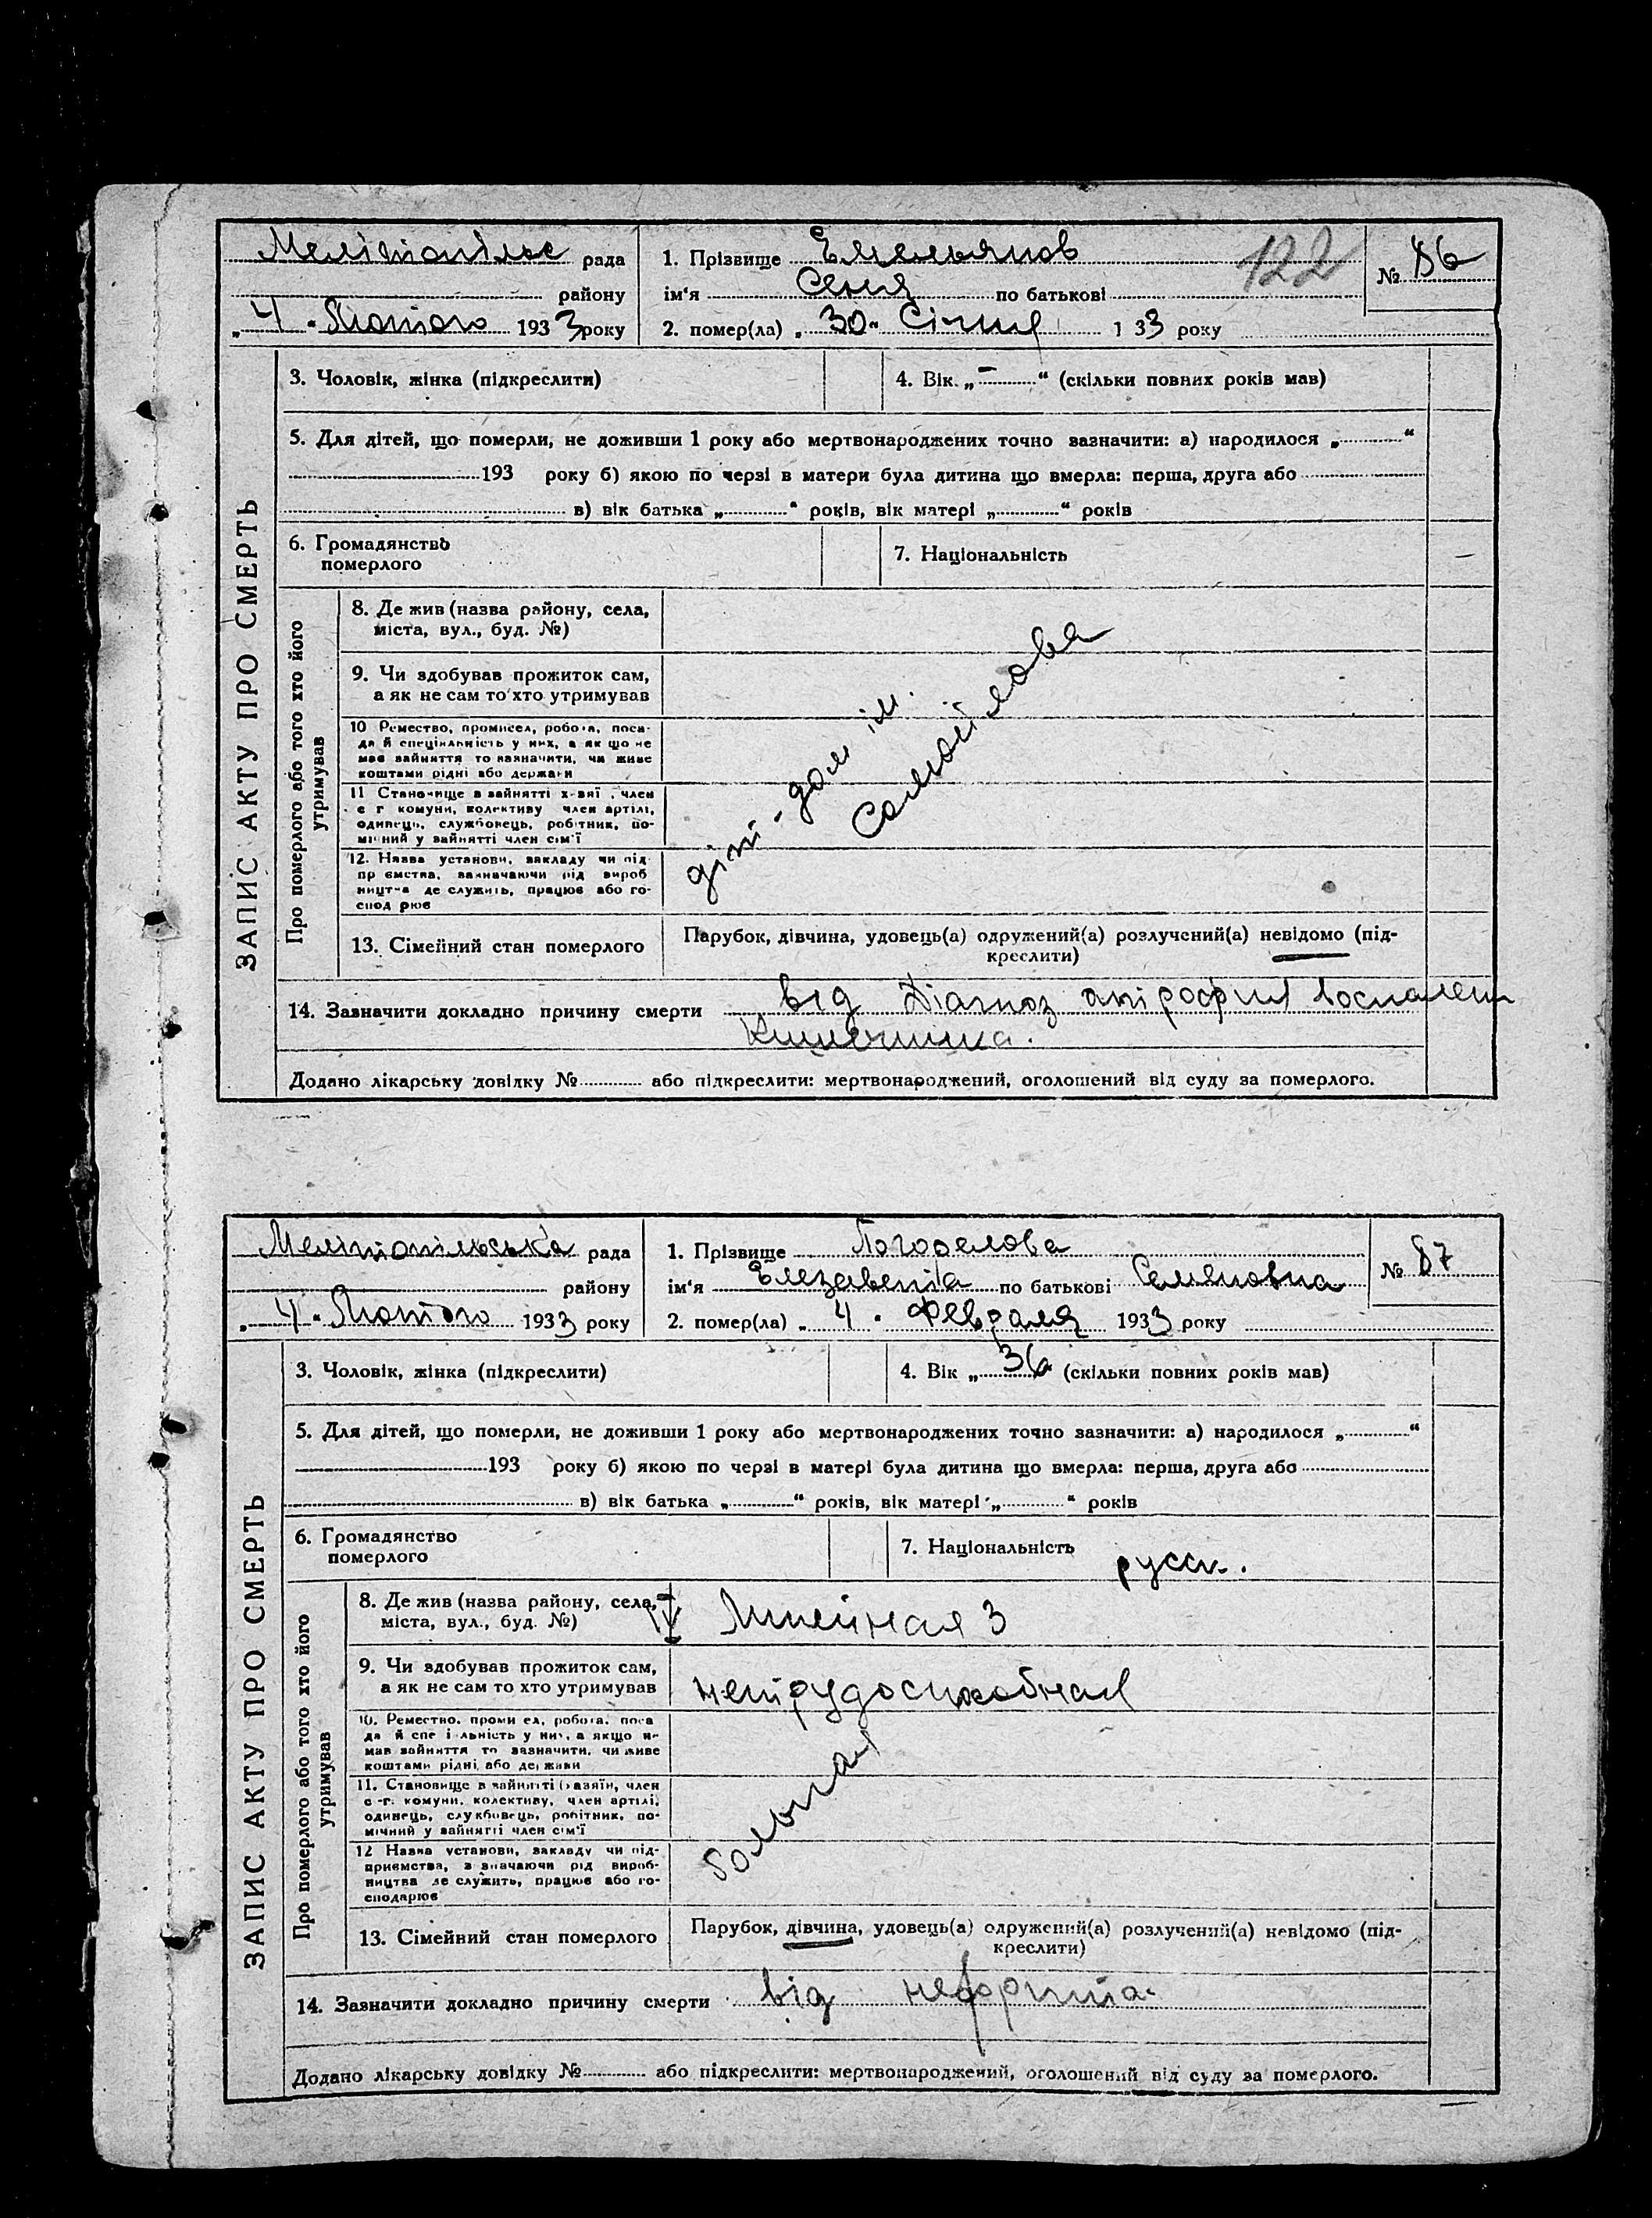 Мелітопільс рада
району
„4“ Лютого 1933 року
1. Прізвище Емельянов
ім'я Сеня по батькові
2. помер(ла) „30“ Січня 1 33 року
122
№ 86
ЗАПИС АКТУ ПРО СМЕРТЬ
3. Чоловік, жінка (підкреслити)
4. Вік „-“ (скільки повних років мав)
5. Для дітей, що померли, не доживши 1 року або мертвонароджених точно зазначити: а) народилося „ “
193 року б) якою по черзі в матери була дитина що вмерла: перша, друга або
в) вік батька „ “ років, вік матері „ “ років
6. Громадянство
померлого
7. Національність
Про померлого або того хто його
утримував
8. Де жив (назва району, села,
міста, вул., буд. №)
9. Чи здобував прожиток сам,
а як не сам то хто утримував
10 Ремество, промисел, робота, поса-
да й спеціяльність у них, а як що не
мав зайняття то зазначити, чи живе
коштами рідні або держави
11 Становище в зайнятті х-зяї , член
с г комуни, колективу член артілі,
одинець, службовець, робітник, по-
мічний у зайнятті член сім'ї
12. Назва установи, закладу чи під-
пр ємства, зазначаючи рід вироб
ництва де служить, працює або го-
спод рює
діт-дом ім.
Самойлова
13. Сімейний стан померлого
Парубок, дівчина, удовець(а) одружений(а) розлучений(а) невідомо (під-
креслити)
14. Зазначити докладно причину смерти від Діагноз атрофия воспален
Кишечника.
Додано лікарську довідку № або підкреслити: мертвонароджений, оголошений від суду за померлого.
Мелітопільська рада
району
„4“ Лютого 1933 року
1. Прізвище Погорелова
ім'я Елезавета по батькові Семеновна
2. помер(ла) „4“ Февраля 1933 року
№ 87
ЗАПИС АКТУ ПРО СМЕРТЬ
3. Чоловік, жінка (підкреслити)
4. Вік „36 (скільки повних років мав)
5. Для дітей, що померли, не доживши 1 року або мертвонароджених точно зазначити: а) народилося „ “
193 року б) якою по черзі в матері була дитина що вмерла: перша, друга або
в) вік батька „ “ років, вік матері „ “ років
6. Громадянство
померлого
7. Національність русск.
Про померлого або того хто його
утримував
8. Де жив (назва району, села,
міста, вул., буд. №)
Линейная 3
9. Чи здобував прожиток сам,
а як не сам то хто утримував
нетрудоспособная
10. Ремество, проми ел, робота, поса
да й спе і льність у них, а якщо н-
мав зайняття то зазначити, чи живе
коштами рідні або держави
11. Становище в зайнятті (хазяїн, член
с-г. комуни, колективу, член артілі,
одинець, службовець, робітник, по-
мічний у зайнятті член сім'ї
12 Назва установи, закладу чи під-
приємства, зазначаючи рід вироб-
ництва де служить, працює або го-
сподарює
больная
13. Сімейвий стан померлого
Парубок, дівчина, удовець(а) одружений(а) розлучений(а) невідомо (під-
креслити)
14. Зазначити докладно причину смерти від нефрита.
Додано лікарську довідку № або підкреслити: мертвонароджений, оголошений від суду за померлого.